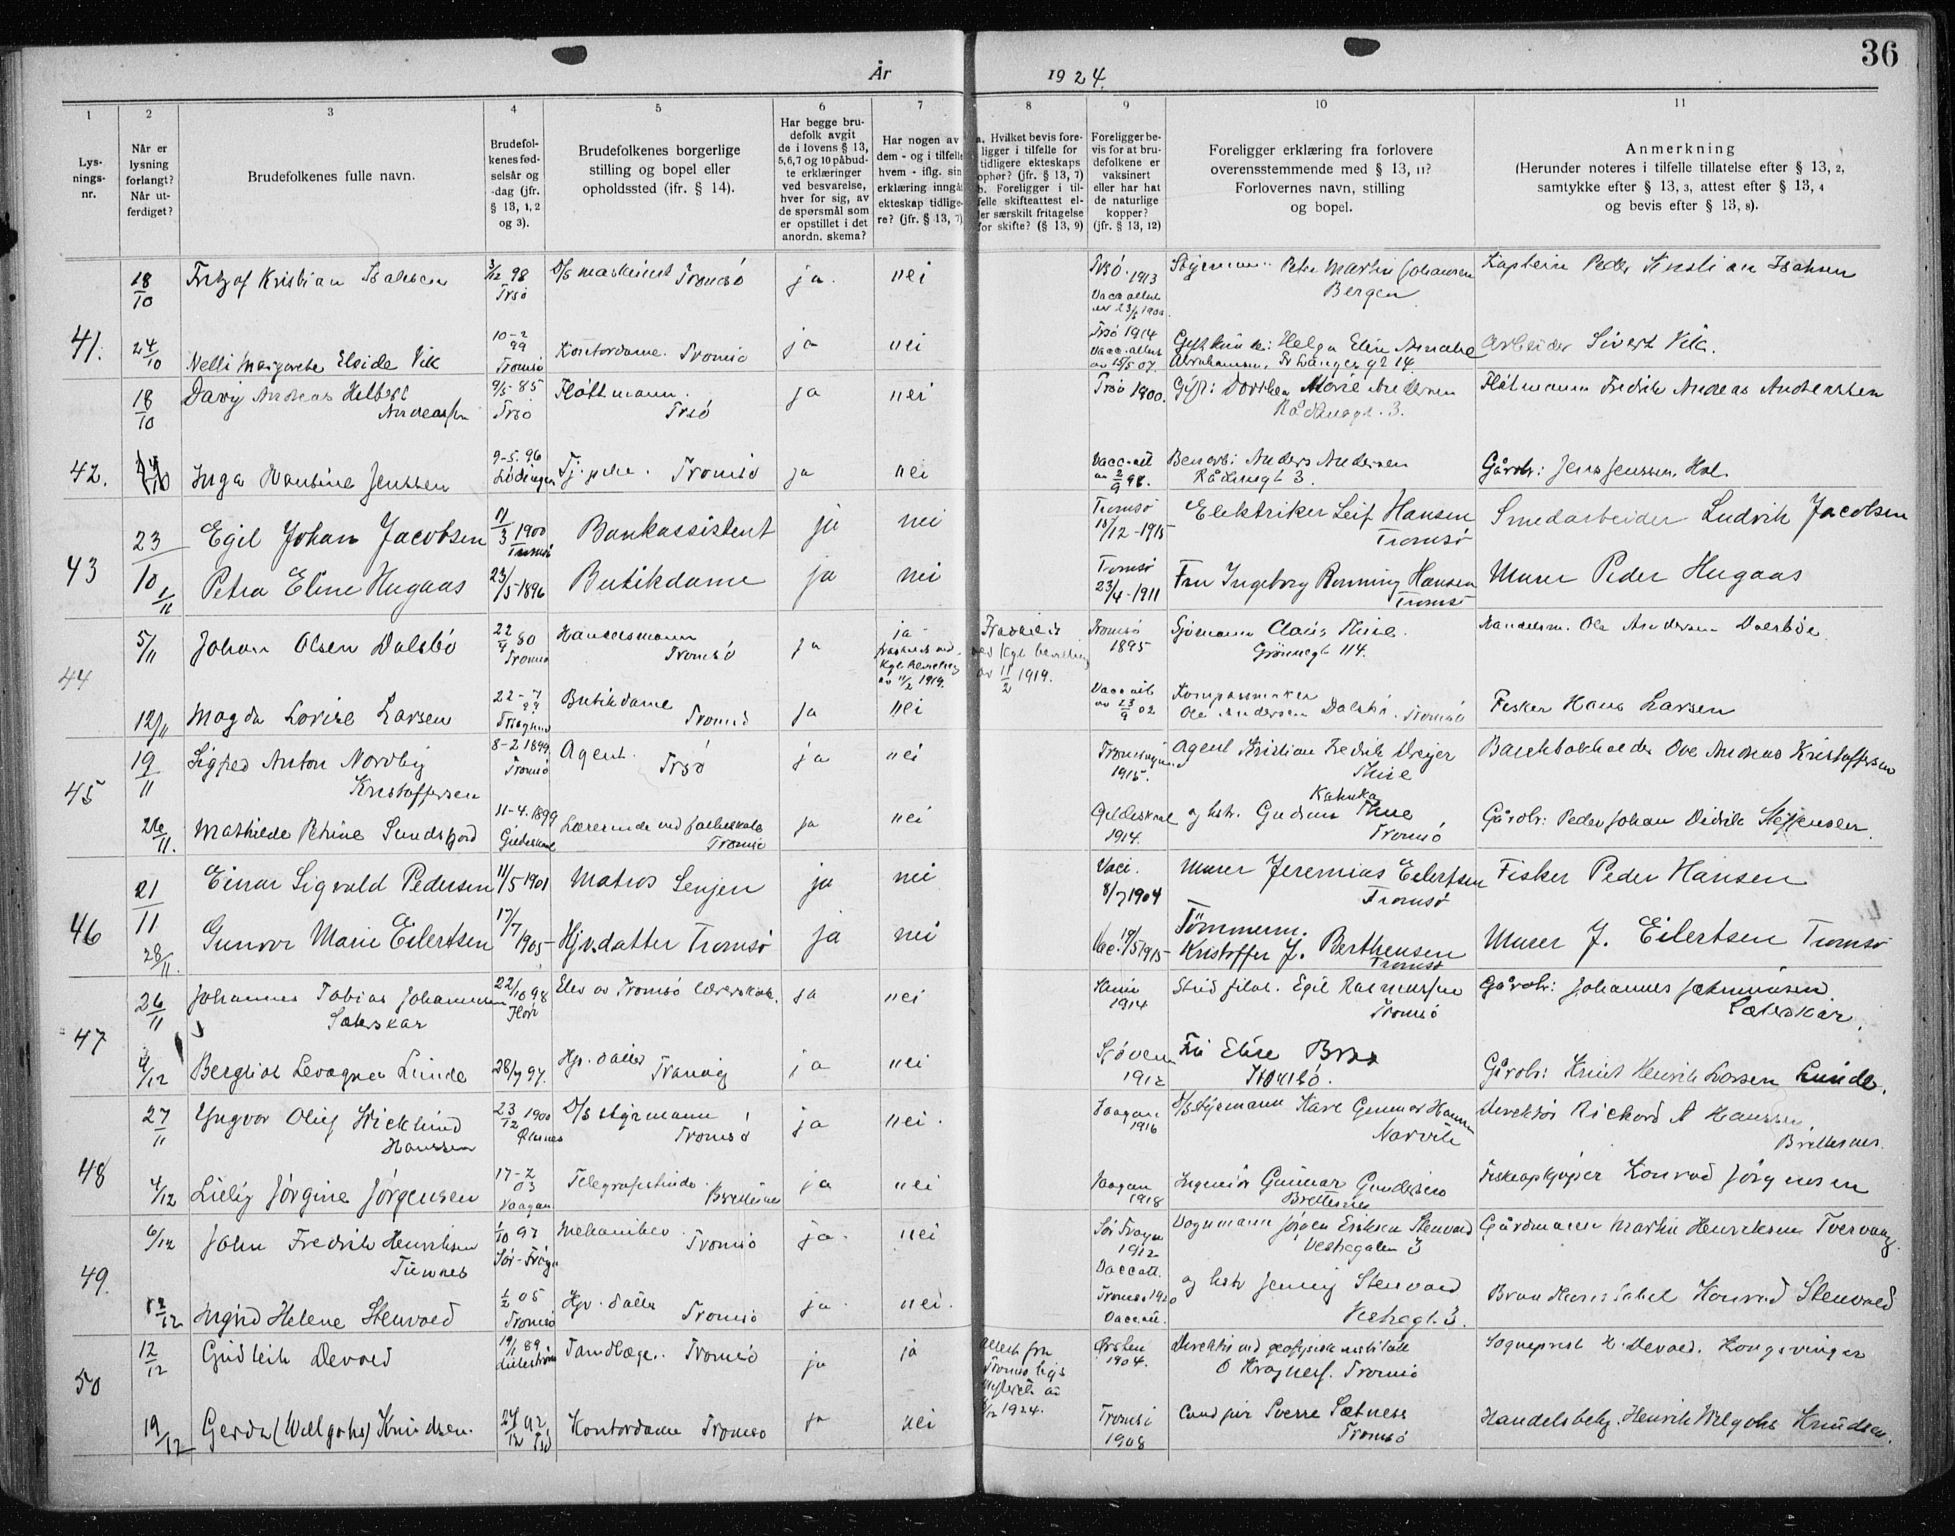 36
År 1924.
1 2 3 4 5 6 7 8 9 10 11
Lysnings-nr.
Når er lysning forlangt? Når utferdiget?
Brudefolkenes fulle navn.
Brudefolkenes fødselsår og -dag (jfr. § 13, 1, 2 og 3).
Brudefolkenes borgerlige stilling og bopel eller opholdssted (ifr. § 14).
Har begge brudefolk avgit de i lovens § 13, 5, 6, 7 og 10 påbudte erklæringer ved besvarelse, hver for sig, av de spørsmål som er opstillet i det anordn. skema?
Har nogen av dem - og i tilfelle hvem - iflg. sin erklæring inngåt ekteskap tidligere? (jfr. § 13, 7)
a. Hvilket bevis foreligger i tilfelle for tidligere ekteskaps ophør? (§ 13, 7) b. Foreligger i tilfelle skifteattest eller særskilt fritagelse for skifte? (§ 13, 9)
Foreligger bevis for at brudefolkene er vaksinert eller har hat de naturlige kopper? (jfr. § 13, 12)
Foreligger erklæring fra forlovere overensstemmende med § 13, 11? Forlovernes navn, stilling og bopel.
Anmerkning (Herunder noteres i tilfelle tillatelse efter § 13, 2, samtykke efter § 13, 3, attest efter § 13, 4 og bevis efter § 13, 8).
18/10 Fritjof Kristian Isaksen 3/12 98 Trsø D/S maskinist Tromsø ja. nei Trsø. 1913 Styrmann Peter Martin Johansen Bergen Kaptein Peder Kristian Isaksen
41. 24/10 Nelli Margarethe Elvide Vik 10-2 99 Tromsø Kontordame. Tromsø ja nei Trsø 1914 Gift kvinde: Helga Eline Amalie Abrahamsen, Fr Langes gt 14 Arbeider Sivert Vik.
18/10 Davij Andreas Helbert Andreassen 9/5-85 Trsø Fløttmann. Trsø ja nei Trsø 1900. Gift: Dorthea Marie Andersen Rådhusgt. 3. Fløtmann Fredrik Andreas Andreassen
42. 24/10 Inga Nantine Jenssen 9-5. 96 Lødingen Tj. pike. Tromsø ja nei Vacc. att av 2/9 98. Anders Andersen Rådhusgt 3. Gårdbr: Jens Jenssen. Hol
43 23/10 Egil Johan Jacobsen 11/3 1900 Tromsø Bankassistent ja nei Tromsø 15/12-1915 Elektriker Leif Hansen Tromsø Smedarbeider Ludvik Jacobsen
1/11 Petra Eline Hugaas 23/5-1896 Butikdame ja nei Tromsø 23/4-1911 Fru Ingeborg Rønning Hansen Tromsø Murer Peder Hugaas
44 5/11 Johan Olsen Dalsbø 22/9 80 Tromsø Handelsmann Tromsø ja ja fraskilt ved Kgl bevilling av 11/2 1919. Fraskilt ved Kgl bevilling av 11/2 1919. Tromsø 1895 Sjømann Claus Thise. Grønnegt 114. Handelsm. Ole Andersen Dalsbøe
12/11 Magda Lovise Larsen 22-7 99 Butikdame Tromsø ja nei Vacc att av 23/9 02 Kompassmaker Ole Andersen Dalsbø. Tromsø Fisker Hans Larsen
45 19/11 Sigfred Anton Nordby Kristoffersen 8-2 1899 Tromsø Agent. Trsø ja nei Tromsøysund 1915. Agent Kristian Fredrik Dreyer Thise Baatbakholder Ove Andreas Kristoffersen
26/11. Mathilde Petrine Sundsfjord 11-4. 1899 Gildeskaal Lærerinde ved folkeskole Tromsø ja nei Gildeskaal 1914. og hstr. Gudrun Thise Tromsø Gårdbr: Peder Johan Didrik Steffensen
46 21/11 Einar Sigvald Pedersen 11/5 1901 Matros Senjen ja nei Vacc. 8/7 1904 Murer Jeremias Eilertsen Tromsø Fisker Peder Hansen
28/11. Gunvor Marie Eilertsen 17/7 1905- Hjv.datter Tromsø ja nei Vac. 19/5 1915- Tømmerm. Kristoffer J. Berthensen Tromsø Murer J. Eilertsen Tromsø
47 26/11 Johannes Tobias Johannessen Sæterskar 22/10 98 Elev av Tromsø lærerskole. ja nei 1914 Stud filol. Egil Rasmussen Tromsø Gårdbr: Johannes Johannessen Sæterskar.
4/12 Bergliot Levogna Lunde 28/7 97. Hjv. datter Tranøy ja nei Sjøvegn 1912 Fru Elise Tromsø. Gårdbr: Knut Henrik Larsen Lunde.
48 27/11 Yngvar Oluf Wicklund Hanssen 23/12 1900 D/S styrmann Tromsø ja nei. Vaagan 1916 D/S Styrmann Kare Gunnar Hansen Narvik Direktør Rickard A Hanssen, Brettesnes.
4/12 Lilly Jørgine Jørgensen 17-2 03 Vaagan Telegrafistinde. Brettesnes ja nei Vaagan 1918 Ingeniør Gunnar Gundersen Brettesnes Fiskeopkjøper Konrad Jørgensen
49. 6/12 John Fredrik Henriksen Tunnes 1/10 97 Sør-Frøya Mekaniker. Tromsø ja. nei Sør Frøya 1912 Vaccatt. Vognmann Jørgen Eriksen Stenvold Vestregaten 3 Gårdmann Martin Henriksen Tvervaag.
12/12 Ingrid Helene Stenvold 1/2 05 Tromsø Hjv. datter Tromsø ja. nei. Tromsø 1920 Vaccatt. og hstr Jenny Stenvold Vestregt. 3. Konrad Stenvold
50 12/12 Gudleik Devold 19/1 89 Lillestrøm Tandlæge. Tromsø ja ja Attest fra Tromsø 1924. Ørsten 1904. Direktør ved geofysisk institutt O Krogness. Tromsø Sogneprest H. Devold. Kongsvinger
19/12 Gerda (Wellgohs) Knudsen. 24/12 92 Trsø Kontordame Tromsø ja nei Tromsø 1908 Cand jur Sverre Sætness Tromsø Handelsbetj. Henrik Welgohs Knudsen.